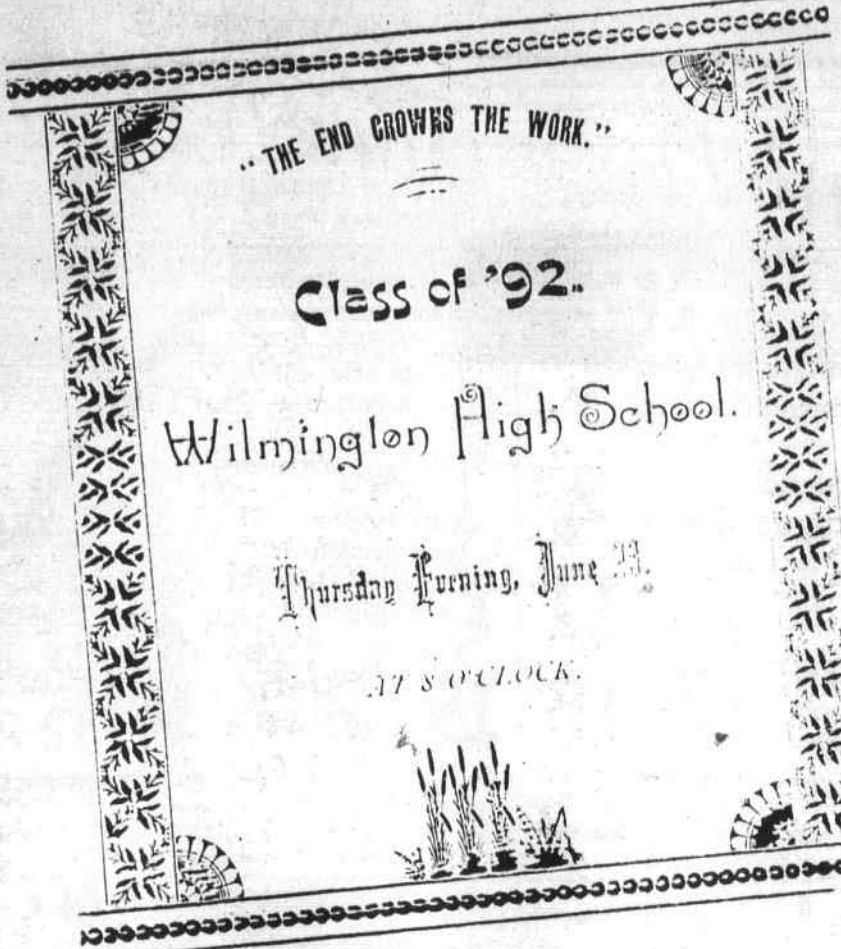 "THE END CROWNS THE WORK."
Class of '92.
Wilmington High School.
Thursday Evening, June 23.
AT 8 O'CLOCK.